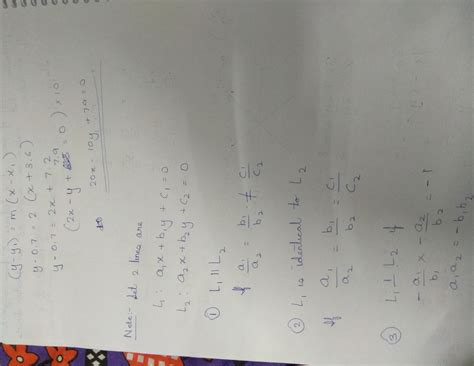 (y-y₁) = m(x-x₁)
y-0.7 = 2(x+3.6)
y-0.7 = 2x+7.2
(2x-y+7.9=0) × 10
20x-10y+79=0
Note:- Let 2 lines are
L₁ : a₁x+b₁y+c₁=0
L₂ : a₂x+b₂y+c₂=0
① L₁ || L₂
If a₁/a₂ = b₁/b₂ ≠ c₁/c₂
② L₁ is identical to L₂
If a₁/a₂ = b₁/b₂ = c₁/c₂
③ L₁ ⊥ L₂ If
-a₁/b₁ × -a₂/b₂ = -1
a₁a₂ = -b₁b₂